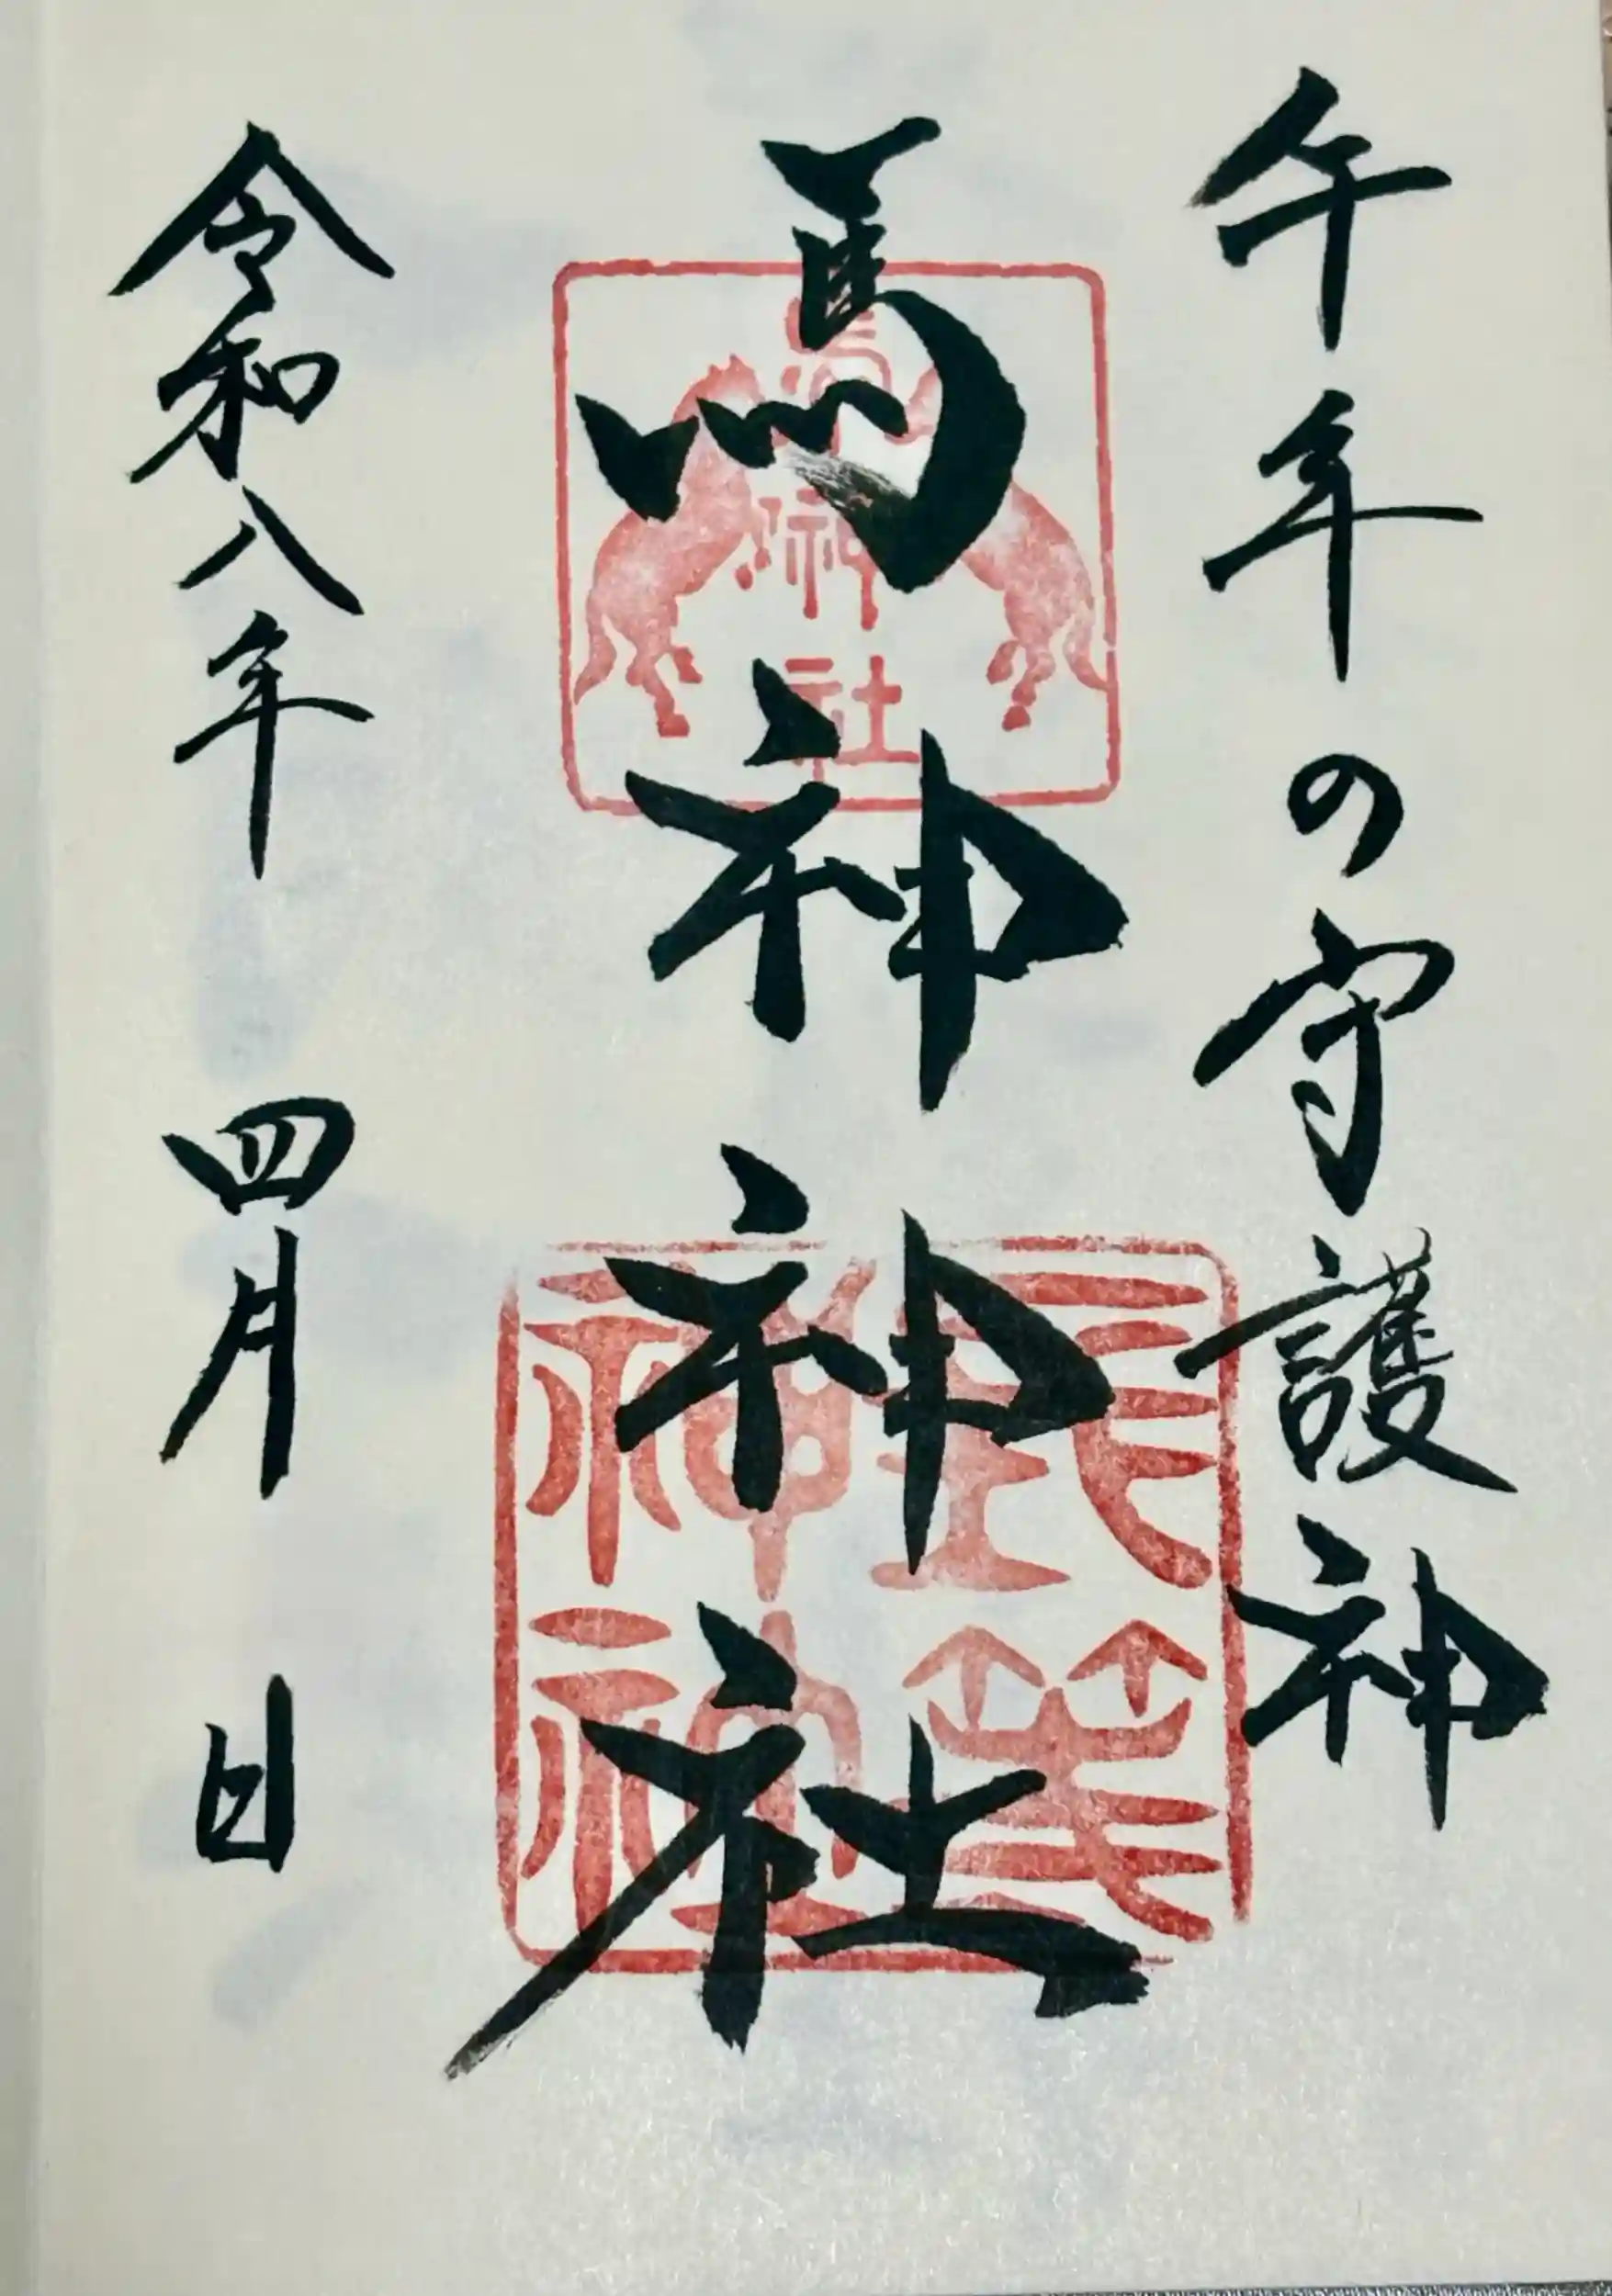 午年の守護神
馬神神社
令和八年 四月 日
馬神神社
長等神社